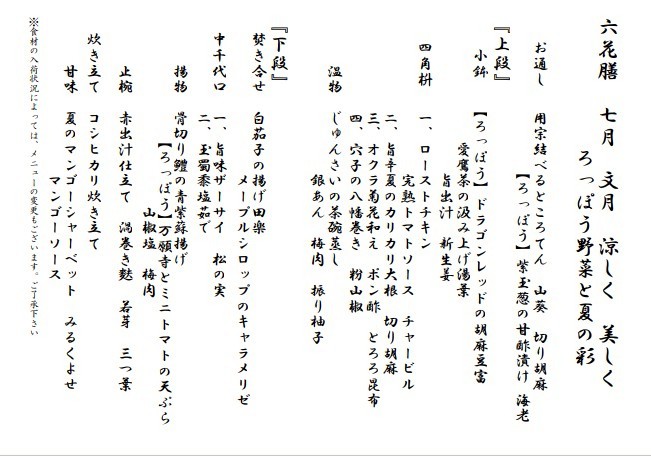 六花膳　七月　文月　涼しく　美しく
ろっぽう野菜と夏の彩
お通し　用宗結べるところてん　山葵　切り胡麻
【ろっぽう】紫玉葱の甘酢漬け　海老
『上段』
小鉢　【ろっぽう】ドラゴンレッドの胡麻豆富
愛鷹茶の汲み上げ湯葉
旨出汁　新生姜
四角枡　一、ローストチキン
完熟トマトソース　チャービル
二、旨辛夏のカリカリ大根　切り胡麻
三、オクラ菊花和え　ポン酢　とろろ昆布
四、穴子の八幡巻き　粉山椒
温物　じゅんさいの茶碗蒸し
銀あん　梅肉　振り柚子
『下段』
焚き合せ　白茄子の揚げ田楽
メープルシロップのキャラメリゼ
中千代口　一、旨味ザーサイ　松の実
二、玉蜀黍塩茹で
揚物　骨切り鱧の青紫蘇揚げ
【ろっぽう】万願寺とミニトマトの天ぷら
山椒塩　梅肉
止椀　赤出汁仕立て　渦巻き麩　若芽　三つ葉
炊き立て　コシヒカリ炊き立て
甘味　夏のマンゴーシャーベット　みるくよせ
マンゴーソース
※食材の入荷状況によっては、メニューの変更もございます。ご了承下さい